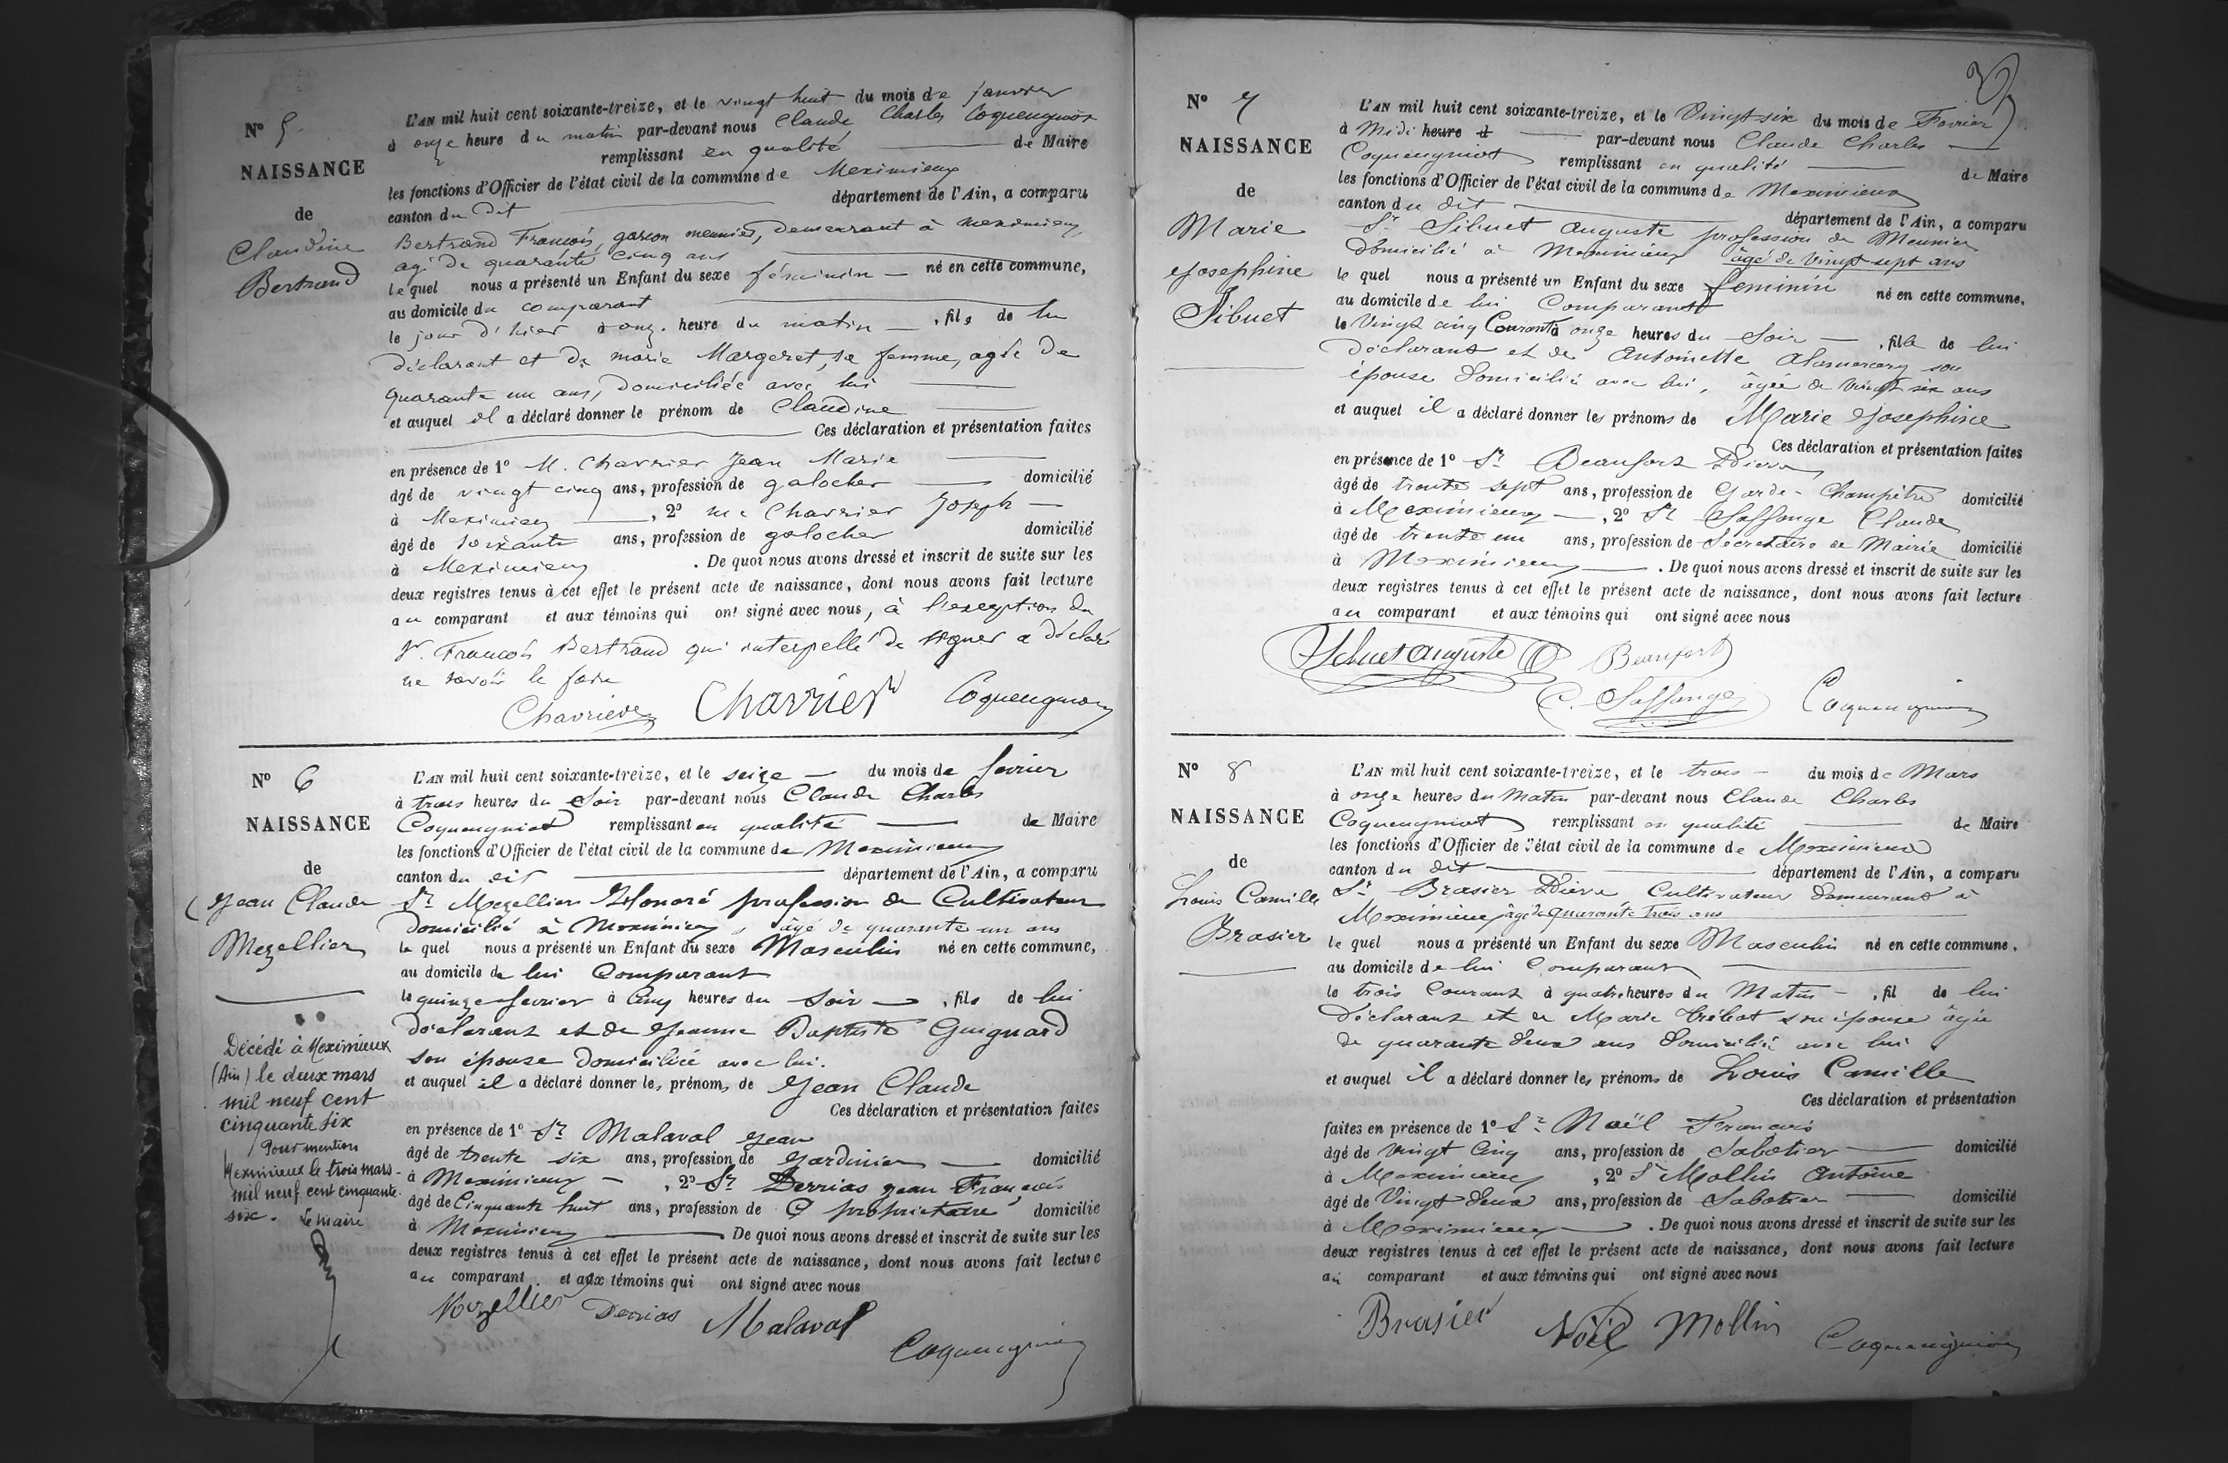 N° 5
NAISSANCE
de
Claudine
Bertrand
L'AN mil huit cent soixante-treize, et le vingt huit du mois de janvier
à onze heure du matin par-devant nous Claude Charles Coquengniot
remplissant en qualité de Maire
les fonctions d'Officier de l'état civil de la commune de Meximieux
canton du dit département de l'Ain, a comparu
Bertrand François, garçon meunier, demeurant à Meximieux,
agé de quarante cinq ans
lequel nous a présenté un Enfant du sexe féminin né en cette commune,
au domicile du comparant
le jour d'hier à onz. heure du matin , fils de lui
déclarant et de marie Margeret, sa femme, agée de
quarante un ans, domiciliée avec lui
et auquel il a déclaré donner le prénom de Claudine
Ces déclaration et présentation faites
en présence de 1° M. Charrier Jean Marie
âgé de vingt cinq ans, profession de galocher domicilié
à Meximieux , 2° me Charrier Joseph
âgé de soixante ans, profession de galocher domicilié
à Meximieux . De quoi nous avons dressé et inscrit de suite sur les
deux registres tenus à cet effet le présent acte de naissance, dont nous avons fait lecture
au comparant et aux témoins qui ont signé avec nous, à l'exception du
Sr. François Bertrand qui interpellé de signer a déclaré
ne savoir le faire
Charrier Coquengniot
N° 6
NAISSANCE
de
Jean Claude
Mezellier
Décédé à Meximieux
(Ain) le deux mars
mil neuf cent
cinquante six
Pour mention
Meximieux le trois mars
mil neuf cent cinquante
six. Le maire
L'AN mil huit cent soixante-treize, et le seize du mois de fevrier
à trois heures du Soir par-devant nous Claude Charles
Coquengniot remplissant en qualité de Maire
les fonctions d'Officier de l'état civil de la commune de Meximieux
canton du dit département de l'Ain, a comparu
Sr Mezellier Honoré profession de Cultivateur
domicilié à Meximieux, âgé de quarante un ans
le quel nous a présenté un Enfant du sexe Masculin né en cette commune,
au domicile de lui Comparant
le quinze fevrier à Cinq heures du Soir , fils de lui
déclarant et de Jeanne Baptiste Guignard
son épouse domiciliée avec lui.
et auquel il a déclaré donner les prénoms de Jean Claude
Ces déclaration et présentation faites
en présence de 1° Sr Malaval Jean
âgé de trente six ans, profession de Jardinier domicilié
à Meximieux , 2° Sr Derrias Jean François
âgé de Cinquante huit ans, profession de propriétaire domicilié
à Meximieux De quoi nous avons dressé et inscrit de suite sur les
deux registres tenus à cet effet le présent acte de naissance, dont nous avons fait lecture
au comparant et aux témoins qui ont signé avec nous
Mezellier Derrias Malaval
Coquengniot
N° 7
NAISSANCE
de
Marie
Josephine
Sibuet
L'AN mil huit cent soixante-treize, et le Vingt six du mois de Fevrier
à Midi heure d par-devant nous Claude Charles
Coquengniot remplissant en qualité de Maire
les fonctions d'Officier de l'état civil de la commune de Meximieux
canton du dit département de l'Ain, a comparu
Sr Sibuet Auguste profession de Meunier
domicilié à Meximieux âgé de vingt sept ans
le quel nous a présenté un Enfant du sexe feminin né en cette commune,
au domicile de lui Comparant
le Vingt cinq Courant à onze heures du Soir , fille de lui
déclarant et de Antoinette son
épouse domiciliée avec lui, âgée de vingt six ans
et auquel il a déclaré donner les prénoms de Marie Josephine
Ces déclaration et présentation faites
en présence de 1° Sr Beaufort Pierre
âgé de trente sept ans, profession de Garde-Champêtre domicilié
à Meximieux , 2° Sr Saffange Claude
âgé de trente un ans, profession de Secrétaire de Mairie domicilié
à Meximieux . De quoi nous avons dressé et inscrit de suite sur les
deux registres tenus à cet effet le présent acte de naissance, dont nous avons fait lecture
au comparant et aux témoins qui ont signé avec nous
Sibuet auguste Beaufort
C. Saffange Coquengniot
N° 8
NAISSANCE
de
Louis Camille
Brasier
L'AN mil huit cent soixante-treize, et le trois du mois de Mars
à onze heures du Matin par-devant nous Claude Charles
Coquengniot remplissant en qualité de Maire
les fonctions d'Officier de l'état civil de la commune de Meximieux
canton du dit département de l'Ain, a comparu
Sr Brasier Pierre Cultivateur demeurant à
Meximieux âgé de quarante trois ans
le quel nous a présenté un Enfant du sexe Masculin né en cette commune,
au domicile de lui Comparant
le trois Courant à quatre heures du Matin , fil de lui
déclarant et de Marie Trébat son épouse âgée
de quarante deux ans domiciliée avec lui
et auquel il a déclaré donner les prénoms de Louis Camille
Ces déclaration et présentation
faites en présence de 1° Sr Noël François
âgé de vingt cinq ans, profession de Sabotier domicilié
à Meximieux , 2° Sr Mollin Antoine
âgé de Vingt deux ans, profession de Sabotier domicilié
à Meximieux . De quoi nous avons dressé et inscrit de suite sur les
deux registres tenus à cet effet le présent acte de naissance, dont nous avons fait lecture
au comparant et aux témoins qui ont signé avec nous
Brasier Noël Mollin Coquengniot